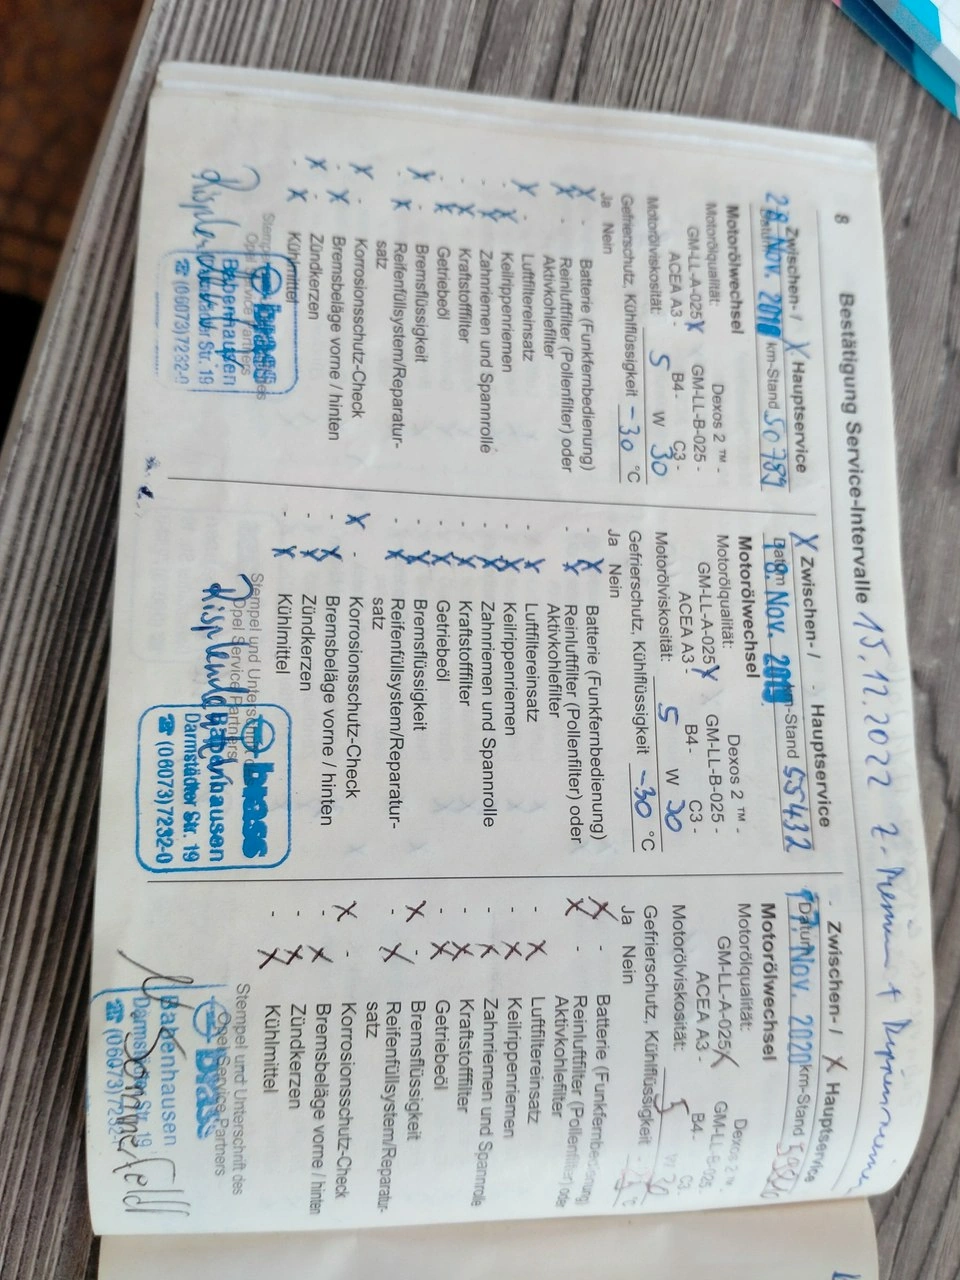 8
Bestätigung Service-Intervalle 15.12.2022
Zwischen- / X Hauptservice
Datum 28. Nov. 2018 km-Stand 50789
Motorölwechsel
Motorölqualität: Dexos 2 ™ -
GM-LL-A-025 X GM-LL-B-025 -
ACEA A3 - B4 - C3 -
Motorölviskosität: 5 W 30
Gefrierschutz, Kühlflüssigkeit -30 °C
Ja Nein
X - Batterie (Funkfernbedienung)
X - Reinluftfilter (Pollenfilter) oder
Aktivkohlefilter
X - Luftfiltereinsatz
- X Keilrippenriemen
- X Zahnriemen und Spannrolle
- X Kraftstofffilter
- X Getriebeöl
X - Bremsflüssigkeit
- X Reifenfüllsystem/Reparatur-
satz
X - Korrosionsschutz-Check
- X Bremsbeläge vorne / hinten
X - Zündkerzen
- X Kühlmittel
Opel Service Partners
brass
Babenhausen
Darmstädter Str. 19
☎ (06073)7232-0
X Zwischen- / - Hauptservice
Datum 18. Nov. 2019 km-Stand 55432
Motorölwechsel
Motorölqualität: Dexos 2 ™ -
GM-LL-A-025 X GM-LL-B-025 -
ACEA A3 - B4 - C3 -
Motorölviskosität: 5 W 30
Gefrierschutz, Kühlflüssigkeit -30 °C
Ja Nein
- X Batterie (Funkfernbedienung)
- X Reinluftfilter (Pollenfilter) oder
Aktivkohlefilter
- X Luftfiltereinsatz
- X Keilrippenriemen
- X Zahnriemen und Spannrolle
- X Kraftstofffilter
- X Getriebeöl
- X Bremsflüssigkeit
- X Reifenfüllsystem/Reparatur-
satz
X - Korrosionsschutz-Check
- X Bremsbeläge vorne / hinten
- X Zündkerzen
- X Kühlmittel
Stempel und
Opel Service Partners
brass
Babenhausen
Darmstädter Str. 19
☎ (06073)7232-0
- Zwischen- / X Hauptservice
Datum 17. Nov. 2020 km-Stand
Motorölwechsel
Motorölqualität: Dexos 2 ™ -
GM-LL-A-025 X GM-LL-B-025 -
ACEA A3 - B4 - C3 -
Motorölviskosität: 5 W 30
Gefrierschutz, Kühlflüssigkeit
Ja Nein
X - Batterie (Funkfernbedienung)
X - Reinluftfilter (Pollenfilter) oder
Aktivkohlefilter
- X Luftfiltereinsatz
- X Keilrippenriemen
- X Zahnriemen und Spannrolle
- X Kraftstofffilter
- X Getriebeöl
X - Bremsflüssigkeit
- X Reifenfüllsystem/Reparatur-
satz
X - Korrosionsschutz-Check
- X Bremsbeläge vorne / hinten
- X Zündkerzen
- X Kühlmittel
Stempel und Unterschrift des
Opel Service Partners
brass
Babenhausen
Darmst. Str. 19
☎ (06073)7232